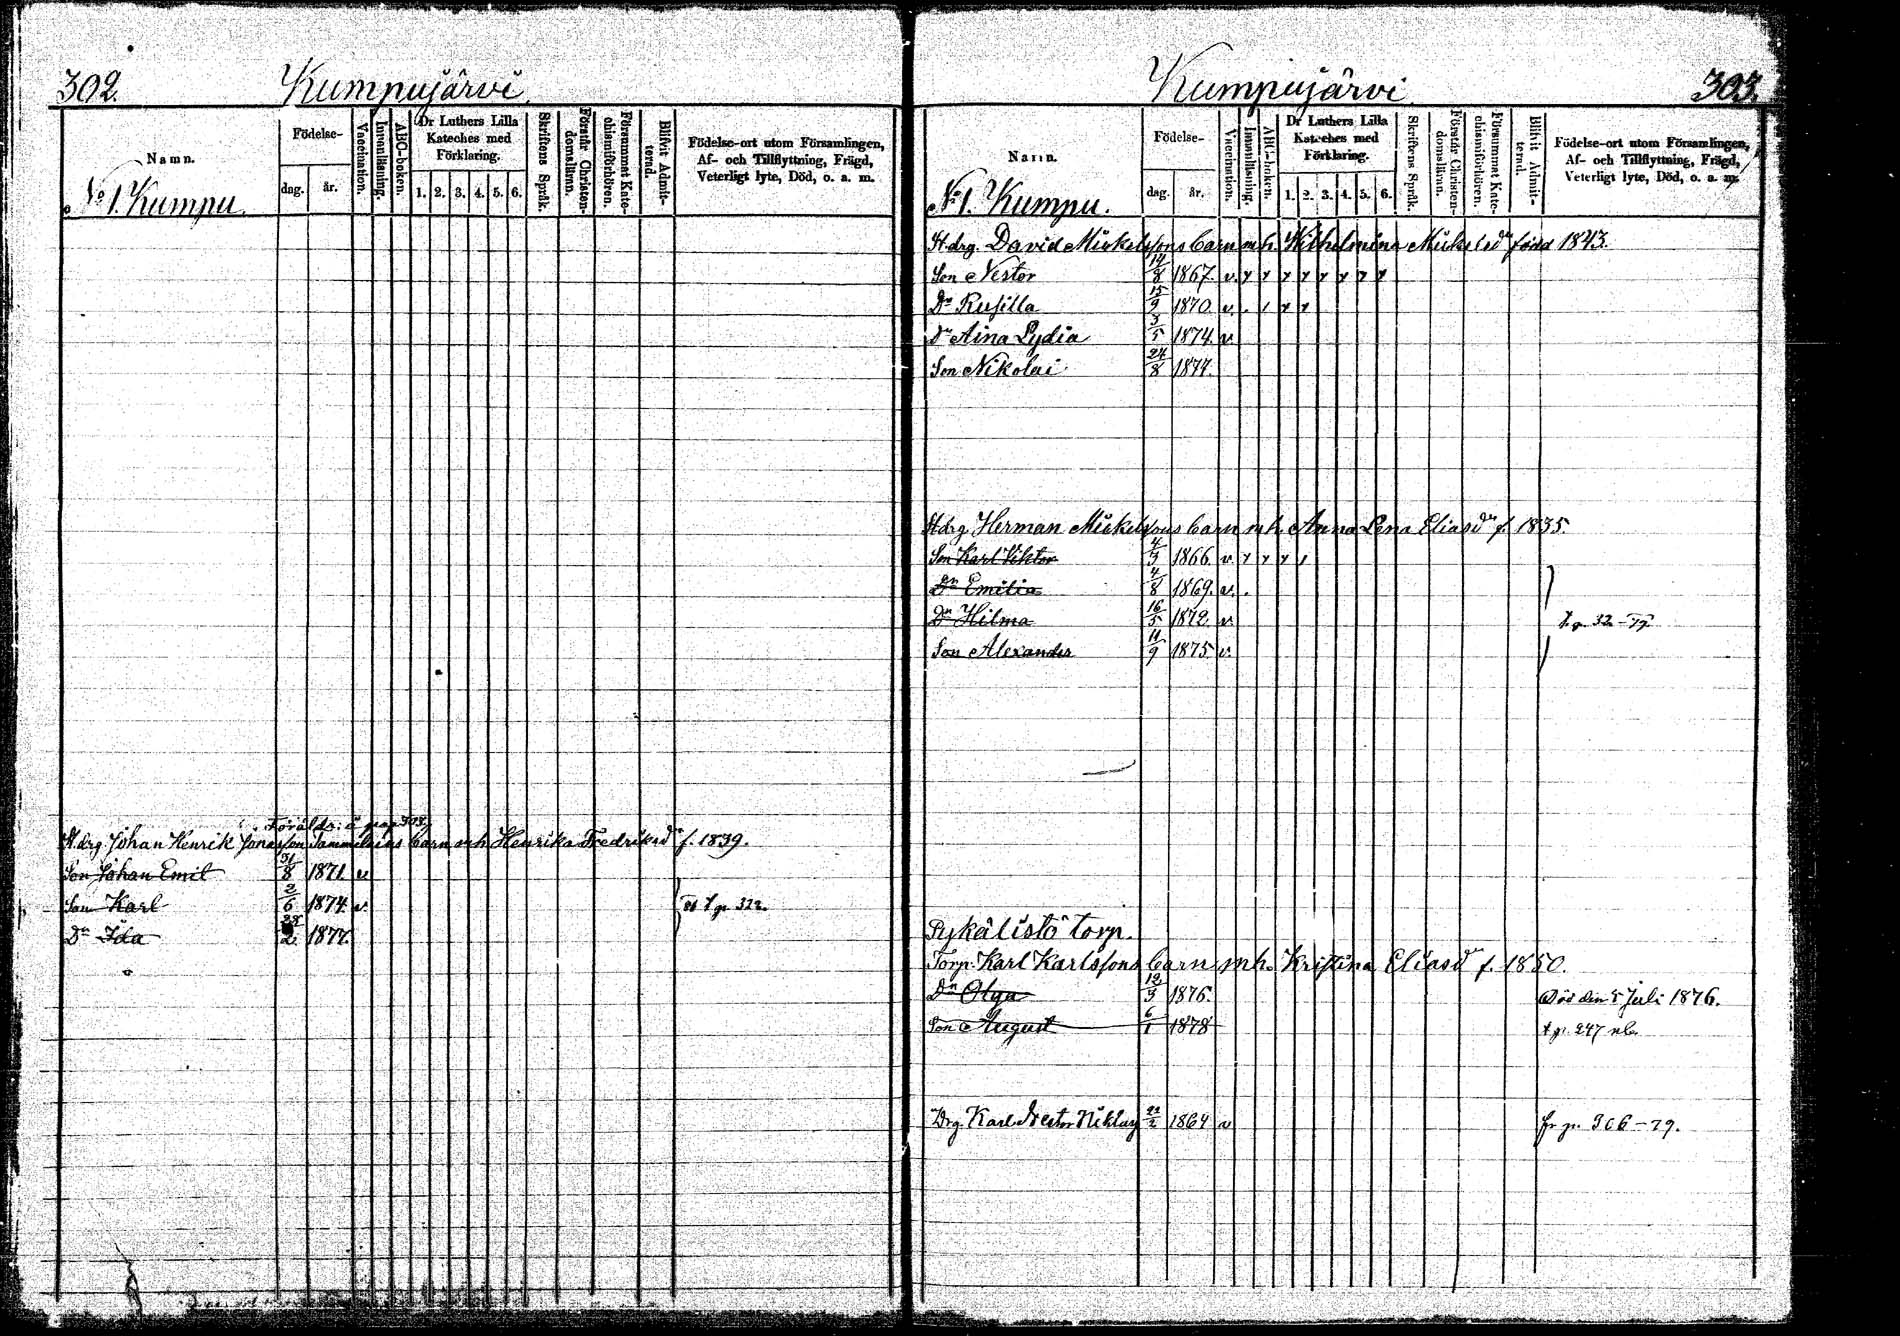 302.
Kumpujärvi.
Namn.
Födelse-
dag.
år.
Vaccination.
Innanläsning.
ABC-boken.
Dr Luthers Lilla
Kateches med
Förklaring.
1. 2. 3. 4. 5. 6.
Skriftens Språk.
Förstår Christen-
domsläran.
Försummat Kate-
chismiförhören.
Blifvit Admit-
terad.
Födelse-ort utom Församlingen,
Af- och Tillflyttning, Frägd,
Veterligt lyte, Död, o. a. m.
No 1. Kumpu.
Föräldr: å pag 303.
St.drg. Johan Henrik Jönasson barn mh Henrika Fredriksdr f. 1839.
Son Johan Emil 31/8 1871. v
Son Karl 2/6 1874. v. t p. 322.
Dr Ida 28/2 1877.
Kumpujärvi.
303.
Namn.
Födelse-
dag.
år.
Vaccination.
Innanläsning.
ABC-boken.
Dr Luthers Lilla
Kateches med
Förklaring.
1. 2. 3. 4. 5. 6.
Skriftens Språk.
Förstår Christen-
domsläran.
Försummat Kate-
chismiförhören.
Blifvit Admit-
terad.
Födelse-ort utom Församlingen,
Af- och Tillflyttning, Frägd,
Veterligt lyte, Död, o. a. m.
No 1. Kumpu.
St.drg. David Mickelssons barn mh. Wilhelmina Mickelsdr född 1843.
Son Nestor 14/8 1867. v.
Dr Rusilla 15/9 1870. v.
Dr Aina Lydia 3/5 1874. v
Son Nikolai 24/8 1877.
St.drg. Herman Mickelssons barn mh. Anna Lena Eliasdr f. 1835.
Son Karl Viktor 4/3 1866. v.
Dr Emilia 4/8 1869. v.
Dr Hilma 16/5 1872. v t p. 32
Son Alexander 11/9 1875. v.
Pykälistö torp.
Torp. Karl Karlssons barn mh. Kristina Eliasdr f. 1850.
Dr Olga 12/3 1876. Död den 5 Juli 1876.
Son August 6/1 1878 t p. 247
Drg. Karl Nestor Niklas 22/2 1864 v fr p. 306-79.